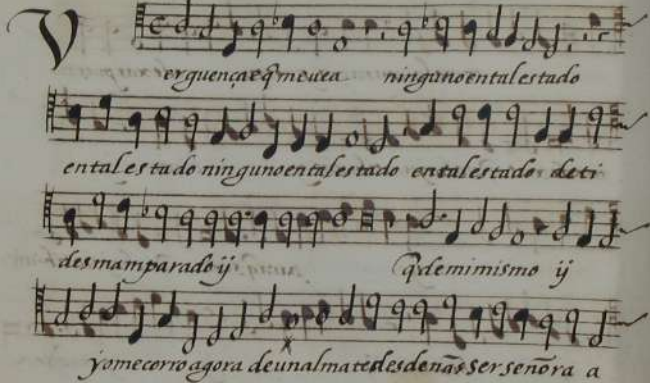 Verguença eq̃ me vea ninguno en tal estado
en tal estado ninguno en tal estado en tal estado de ti
desmamparado ij q̃ de mi mismo ij
yo me corro agora de un alma te desdeñas ser señora a